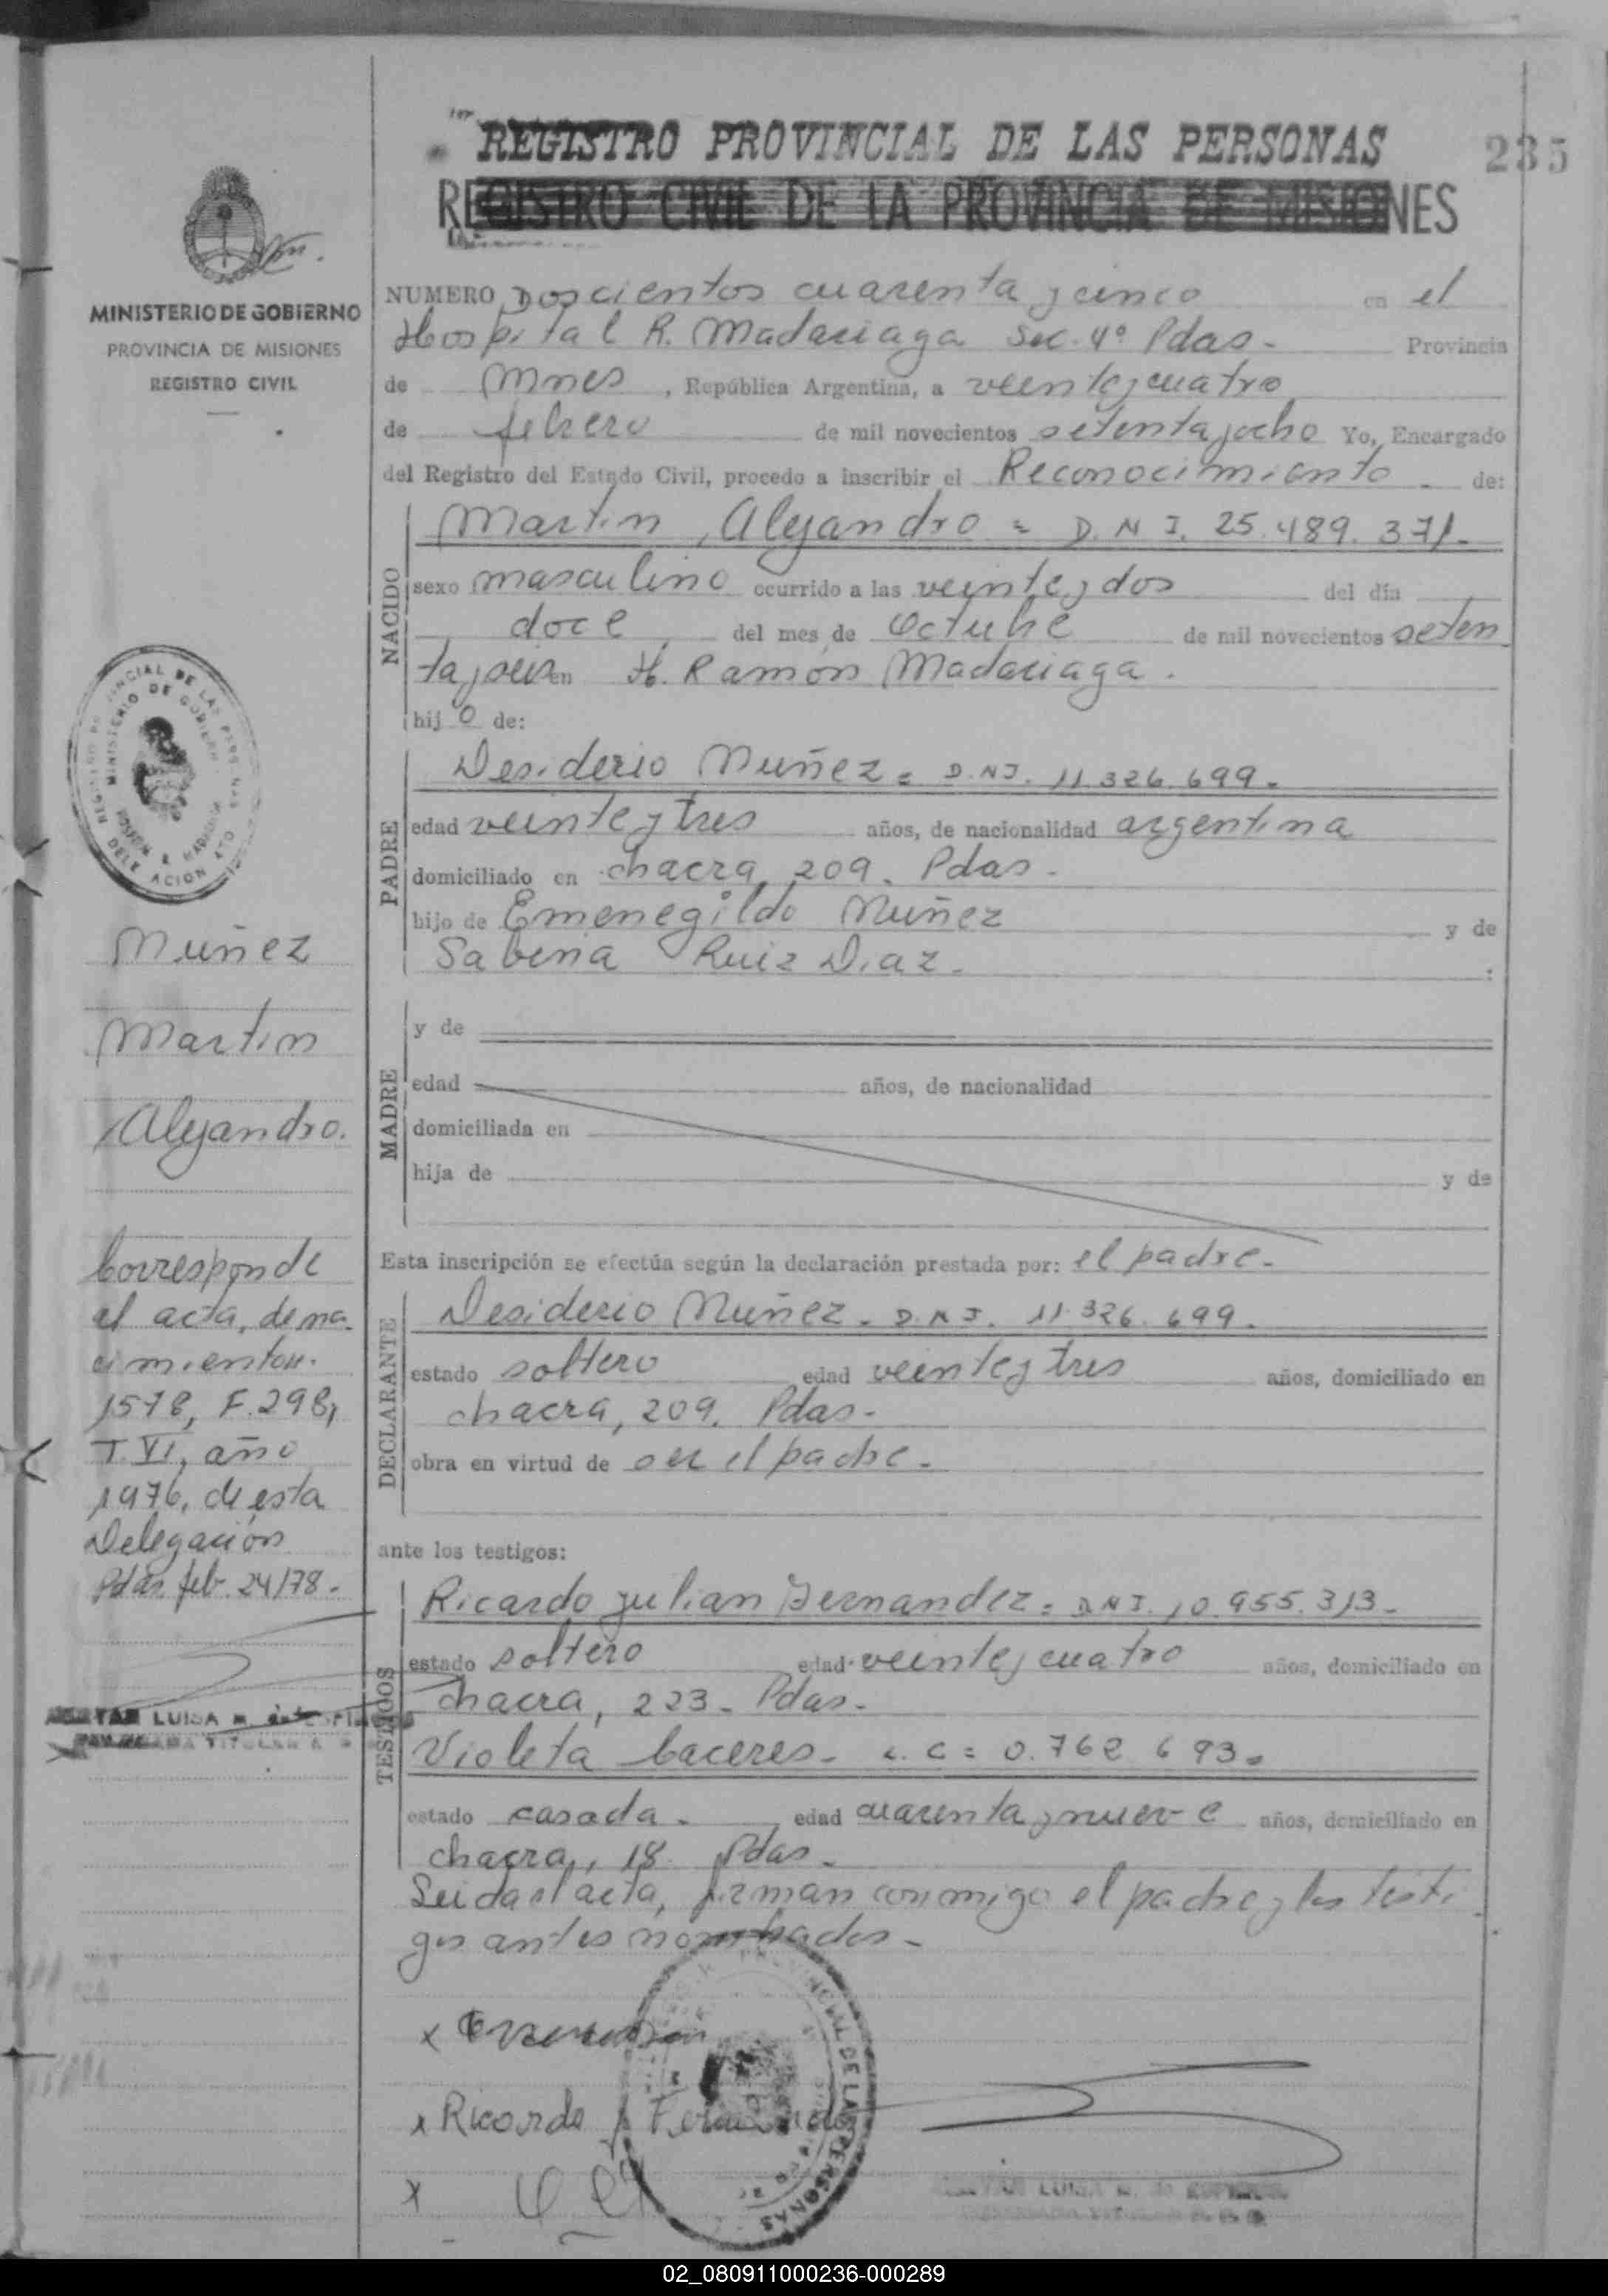 REGISTRO PROVINCIAL DE LAS PERSONAS
235
REGISTRO CIVIL DE LA PROVINCIA DE MISIONES
MINISTERIO DE GOBIERNO
PROVINCIA DE MISIONES
REGISTRO CIVIL
NUMERO Doscientos cuarenta y cinco en el
Hospital R. Madariaga Sec. 4º Pdas. Provincia
de Mnes, República Argentina, a veinte y cuatro
de febrero de mil novecientos setenta y ocho Yo, Encargado
del Registro del Estado Civil, procedo a inscribir el Reconocimiento de:
NACIDO
Martin, Alejandro = D.N.I. 25.489.371.
sexo masculino ocurrido a las veinte y dos del día
doce del mes de Octubre de mil novecientos seten
ta y seis en H. Ramón Madariaga.
hijo de:
PADRE
Desiderio Muñez = D.N.I. 11.326.699.
edad veinte y tres años, de nacionalidad argentina
domiciliado en chacra, 209. Pdas.
hijo de Emenegildo Muñez y de
Sabina Ruiz Diaz.
MADRE
y de
edad años, de nacionalidad
domiciliada en
hija de y de
Esta inscripción se efectúa según la declaración prestada por: el padre.
DECLARANTE
Desiderio Muñez. D.N.I. 11.326.699.
estado soltero edad veinte y tres años, domiciliado en
chacra, 209. Pdas.
obra en virtud de ser el padre.
ante los testigos:
TESTIGOS
Ricardo Julian Fernandez = D.N.I. 10.955.313.
estado soltero edad veinte y cuatro años, domiciliado en
chacra, 223. Pdas.
Violeta Caceres. L.C = 0.762.693.
estado casada. edad cuarenta y nueve años, domiciliado en
chacra, 18. Pdas.
Leida el acta, firman conmigo el padre y los testi
gos antes nombrados.
x
x Ricardo J Fernandez
x
Muñez
Martin
Alejandro.
Corresponde
al acta, de na
cimiento n.
1578, F. 298,
T. VI, año
1976, de esta
Delegación
Pdas. feb. 24/78.
LUISA M. de
02_080911000236-000289